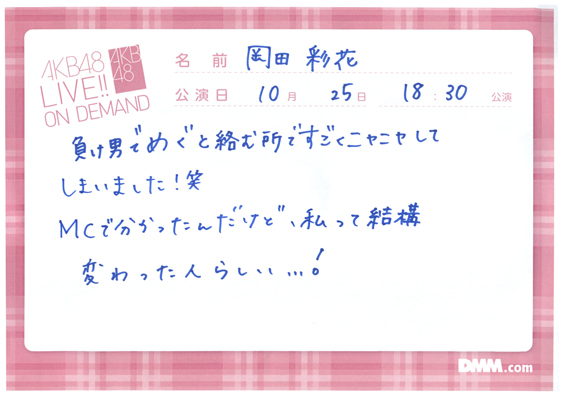 AKB48
LIVE!!
ON DEMAND
AKB
48
名前 岡田 彩花
公演日 10月 25日 18:30 公演
負け男でめぐと絡む所ですごくニヤニヤして
しまいました!笑
MCで分かったんだけど、私って結構
変わった人らしい...!
DMM.com